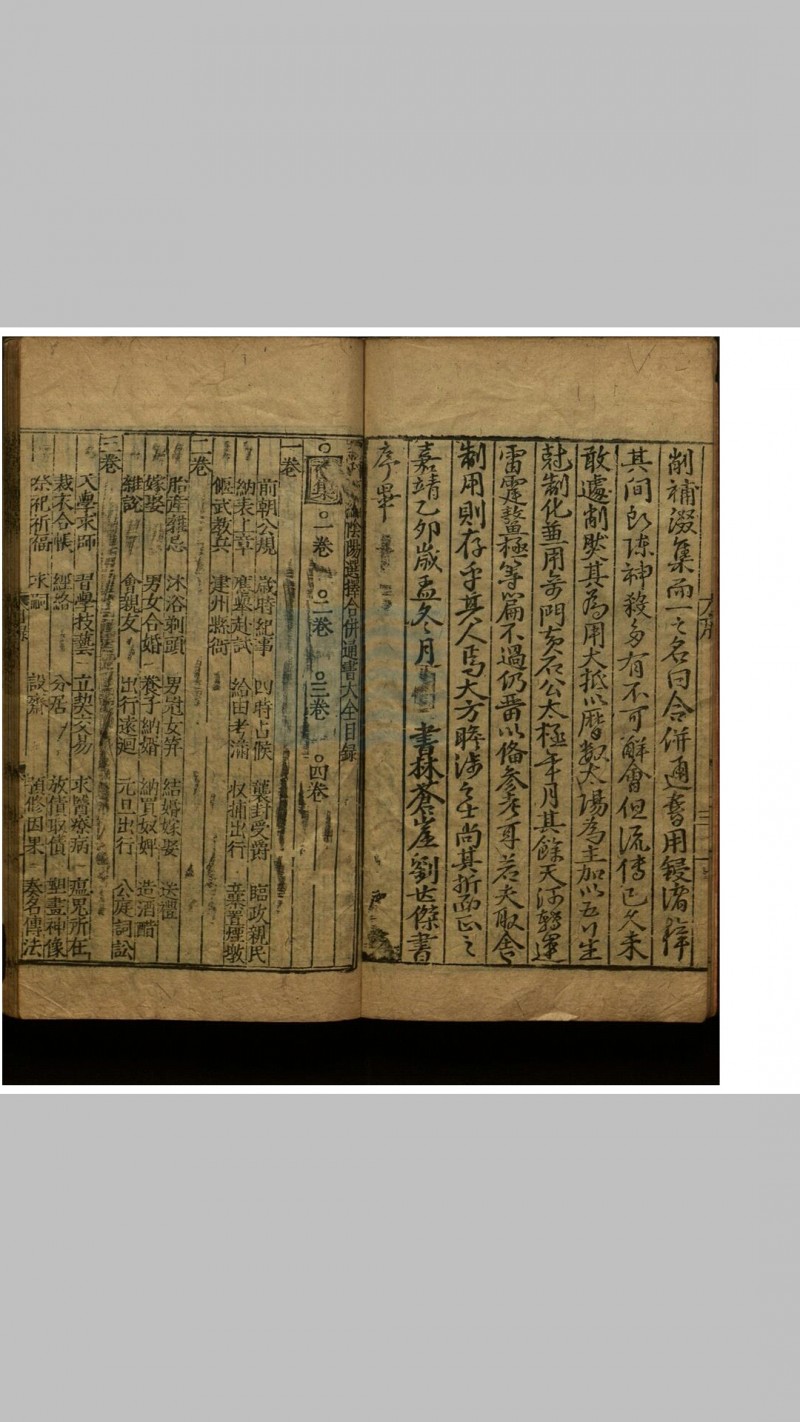 削補濲集而一之名曰合併通書用鋟諸梓
其間所陳神殺多有不可解會但流傳已久未
敢遽削㸐其為用大抵以曆數太陽為主加以五行生
尅制化並用奇門黃石公太極年月其餘天河轉運
雷霆鰲極等篇不過仍番以俻參考耳若夫取舍
制用則存乎其人焉大方睟涉之士尚其折而正之
嘉靖乙卯歲孟冬月書林蒼崖劉世傑書
序畢
陰陽選擇合併通書大全目錄
集 一卷 二卷 三卷 四卷
一卷
前朝公規 歲時紀事 四時占候 襲封受爵 臨政親民
納表上章 應舉赴試 給由考滿 收捕出行
偃武教兵 建州縣衙
二卷
胎產雜忌 沐浴剃頭 男冠女筓 結婚嫁娶 送禮
嫁娶 男女合婚 養子納婚 納買奴婢 造酒醋
雜說 會親友 出行遠廻 元旦出行 公庭詞訟
三卷
入學求師 習學技藝 立契交易 求醫療病 瘟鬼所在
裁衣合帳 經絡 分居 放債取債 塑畫神像
祭祀祈福 求嗣 設齋 預修因果 奏名傳法